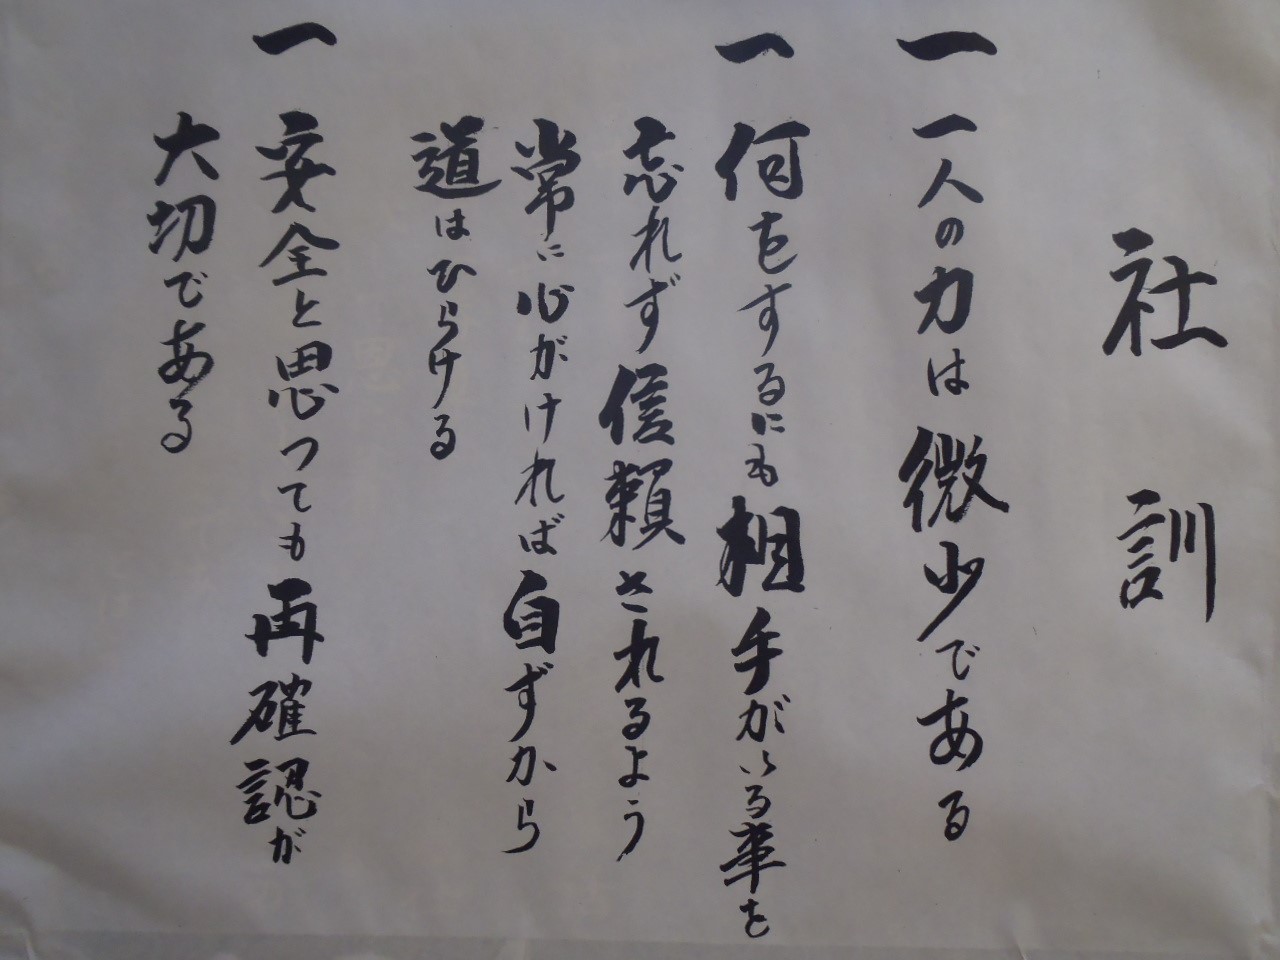 社訓
一 一人の力は微少である
一 何をするにも相手がいる事を
忘れず信頼されるよう
常に心がければ自ずから
道はひらける
一 安全と思っても再確認が
大切である